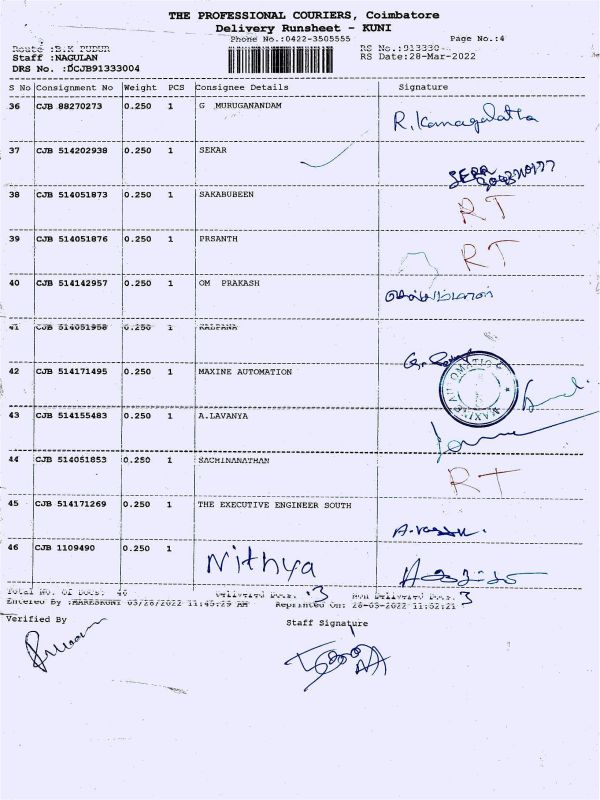 THE PROFESSIONAL COURIERS, Coimbatore
Delivery Runsheet - KUNI
Phone No.:0422-3505555 Page No.:4
Route :B.K PUDUR RS No.:913330
Staff :NAGULAN RS Date:28-Mar-2022
DRS No. :DCJB91333004
S No Consignment No Weight PCS Consignee Details Signature
36 CJB 88270273 0.250 1 G MURUGANANDAM
R. Kanagalatha
37 CJB 514202938 0.250 1 SEKAR
38 CJB 514051873 0.250 1 SAKABUBEEN RT
39 CJB 514051876 0.250 1 PRSANTH RT
40 CJB 514142957 0.250 1 OM PRAKASH
41 CJB 514051958 0.250 1 KALPANA
42 CJB 514171495 0.250 1 MAXINE AUTOMATION
43 CJB 514155483 0.250 1 A.LAVANYA
44 CJB 514051853 0.250 1 SACHINANATHAN RT
45 CJB 514171269 0.250 1 THE EXECUTIVE ENGINEER SOUTH
46 CJB 1109490 0.250 1 Nithya
Total No. Of Docs: 46 Delivered Docs. :3 Non Delivered Docs. 3
Entered By :HARESKUNI 03/28/2022 11:45:29 AM Reprinted On: 28-03-2022 11:52:21
Verified By Staff Signature